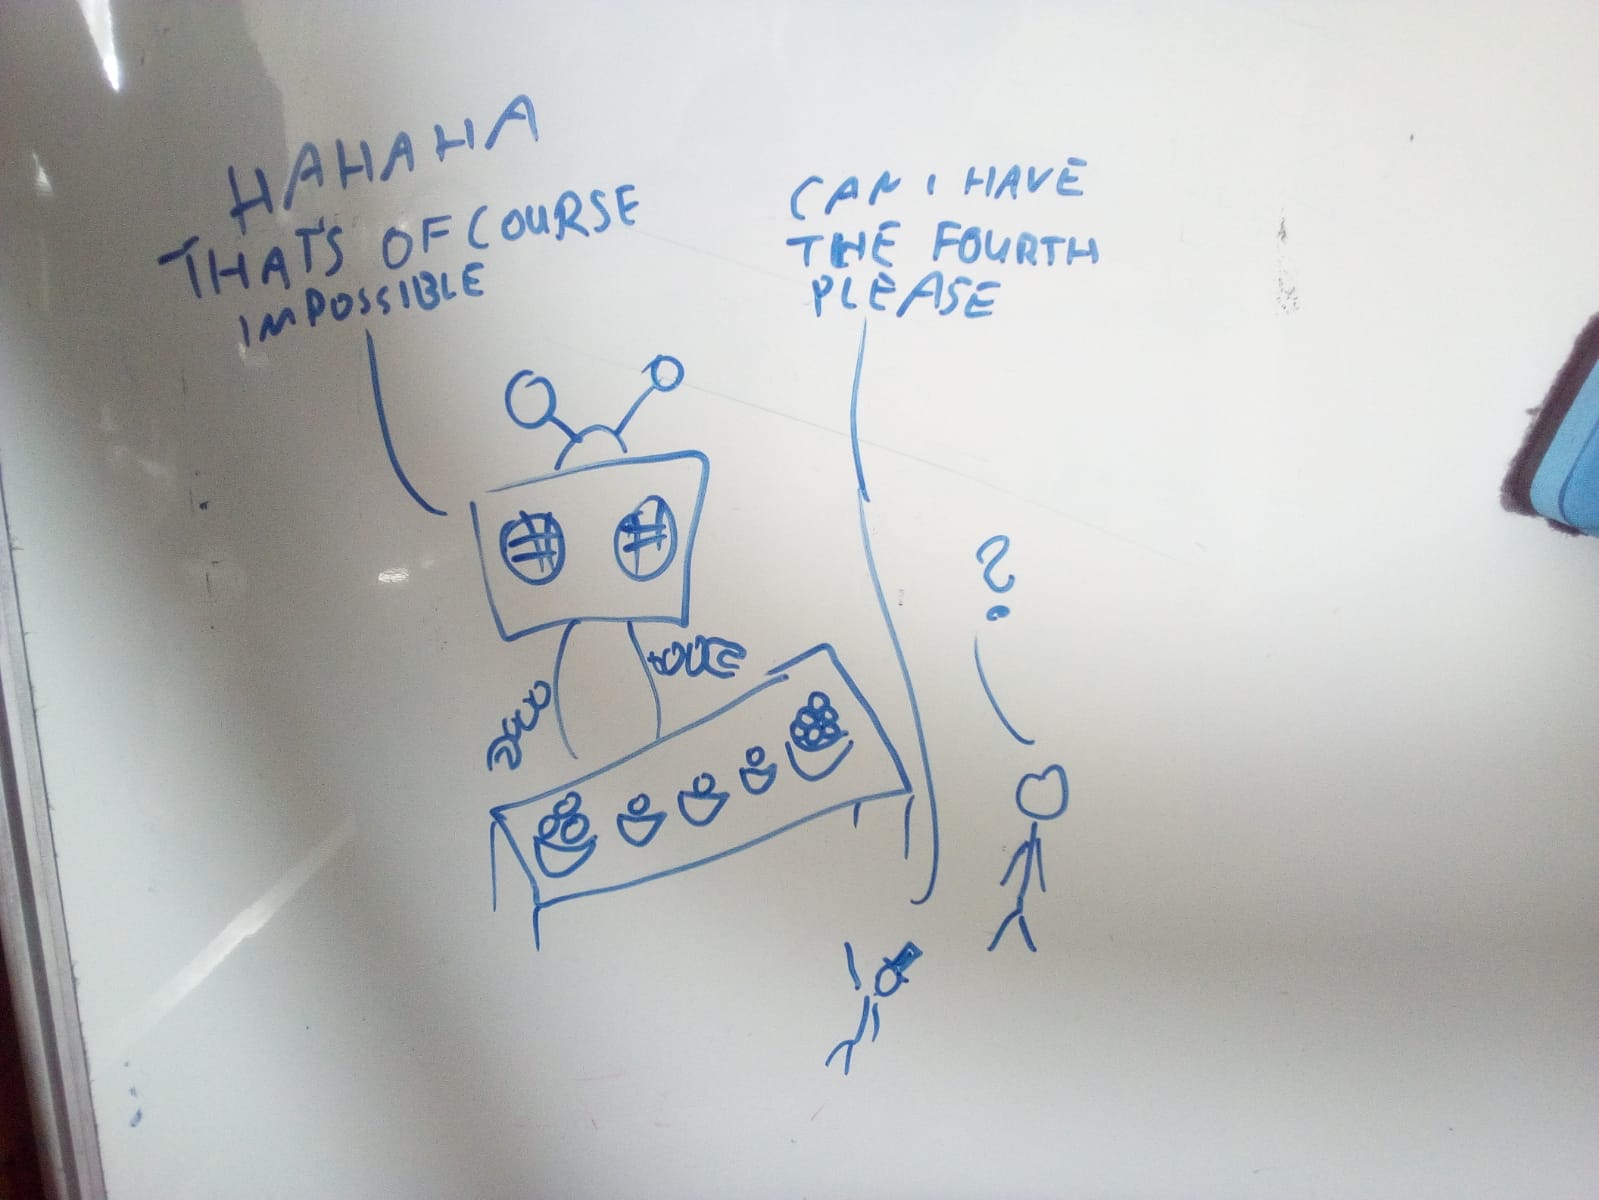 HAHAHA
THAT'S OF COURSE
IMPOSSIBLE
CAN I HAVE
THE FOURTH
PLEASE
?